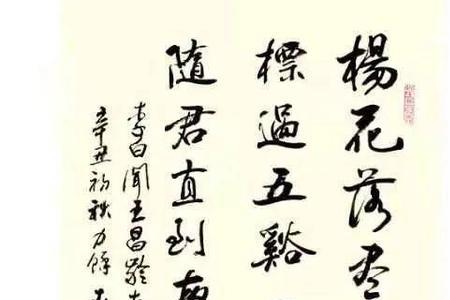 楊花落尽
標過五谿
隨君直到夜
李白聞王昌齡左
辛丑初秋力餘